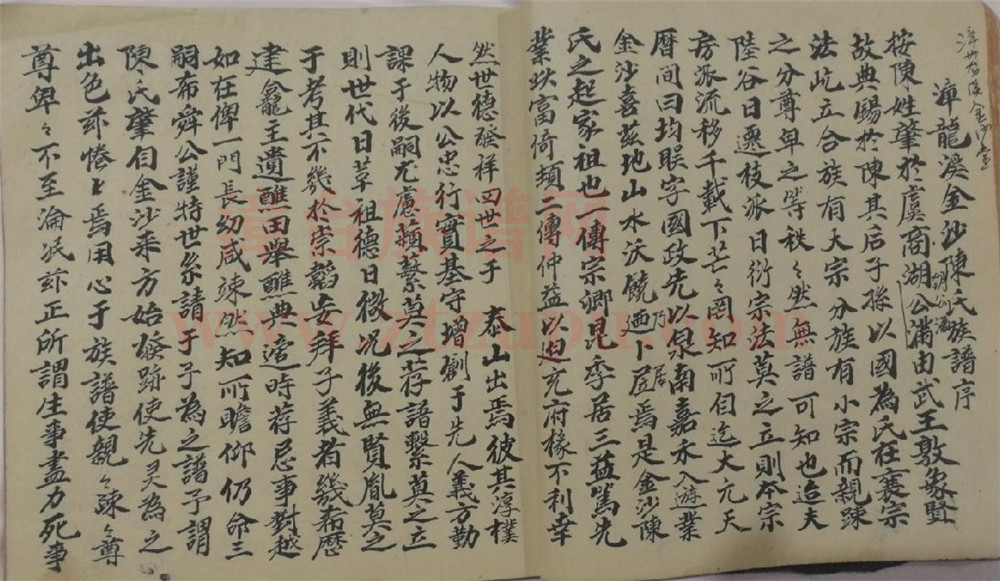 漳州龙溪金沙堂
漳龍溪金沙陳氏族譜序
按陳姓肇於虞商湖公滿由武王敦象賢
明刘海
故典賜於陳其后子孫以國為氏在衰宗
法屹立合族有大宗分族有小宗而親踈
之分尊卑之等秩々然無譜可知也迨夫
陸谷日遷枝派日衍宗法莫之立則本宗
房派流移千載下茫々罔知所自迄大元天
暦间曰均睽字國政先以泉南嘉禾入遊業
金沙喜茲地山水沃饒廼卜居焉是金沙陳
乃居
氏之起家祖也一傳宗卿昆季居三益篤先
業以富倚頓二傳仲益以迢充府椽不利幸
然世德發祥四世之于 泰山出焉彼其淳樸
人物以公忠行實基守增劇于先人義方勤
課于後嗣尤慮蘋蘩莫之荐語繫莫之立
則世代日草祖德日微况後無賢胤莫之
于考其不幾於崇韜妄拜子義者幾希歷
建龕王遺醮田舉醮典遠時荐忌事對越
如在俾一門長幼咸竦然知所瞻仰仍命三
嗣希舜公謹特世系請于予為之譜予謂
陳氏肇自金沙来方始發跡使先灵為之
出色茚惓々焉用心于族譜使親々踈々尊
尊卑々不至淪泯茚正所謂生事盡力死事
臺台族谱网
www.ztzupu.com